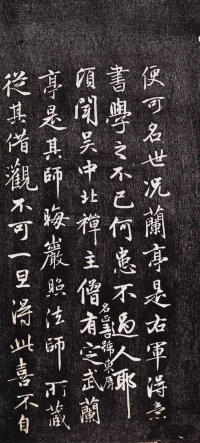 便可名世況蘭亭是右軍得意
書學之不已何患不過人耶
頃聞吳中北禪主僧名正吾號東屏有定武蘭
亭是其師晦巖照法師所藏
從其借觀不可一旦得此喜不自